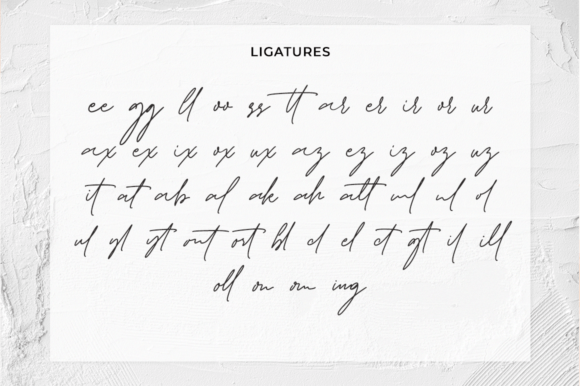 LIGATURES
ee gg ll oo ss tt ar er ir or ur
ax ex ix ox ux az ez iz oz uz
it at ab al ak ah att ml nl ol
ul yl yt ont ost bl cl el ct gt il ill
oll on om ing